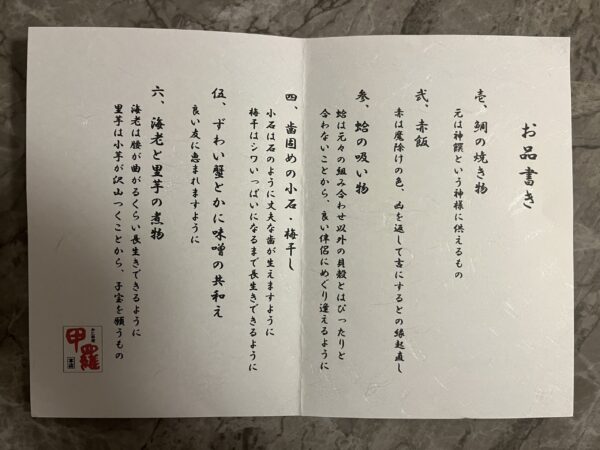 お品書き
壱、鯛の焼き物
元は神饌という神様に供えるもの
弐、赤飯
赤は魔除けの色、凶を返して吉にするとの縁起直し
参、蛤の吸い物
蛤は元々の組み合わせ以外の貝殻とはぴったりと
合わないことから、良い伴侶にめぐり逢えるように
四、歯固めの小石・梅干し
小石は石のように丈夫な歯が生えますように
梅干はシワいっぱいになるまで長生きできるように
伍、ずわい蟹とかに味噌の共和え
良い友に恵まれますように
六、海老と里芋の煮物
海老は腰が曲がるくらい長生きできるように
里芋は小芋が沢山つくことから、子宝を願うもの
甲羅
本店